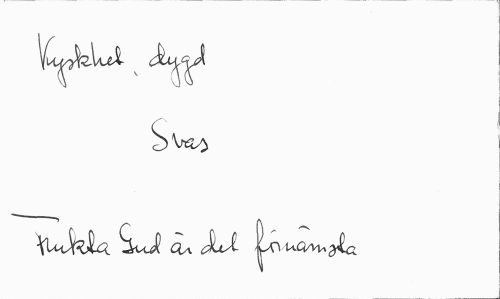 Kyskhet, dygd
Svas
Frukta Gud är det förnämsta